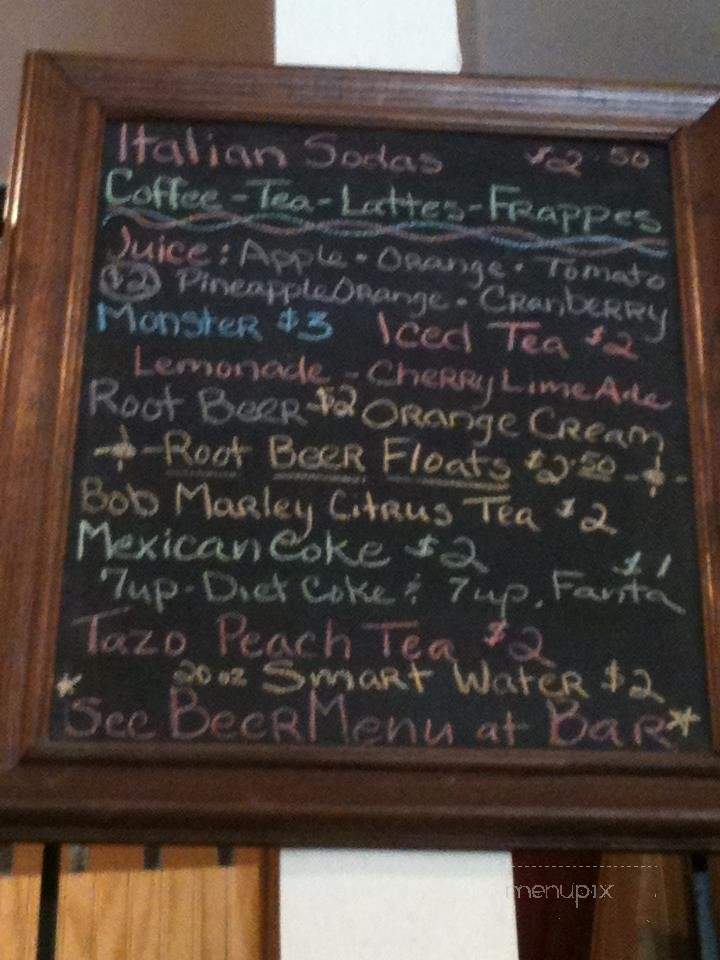 Italian Sodas $2.50
Coffee-Tea-Lattes-Frappes
Juice: Apple • Orange • Tomato
$2 Pineapple Orange • Cranberry
Monster $3 Iced Tea $2
Lemonade - Cherry Lime Ade
Root Beer $2 Orange Cream
Root Beer Floats $2.50
Bob Marley Citrus Tea $2
Mexican Coke $2
$1
7up - Diet Coke & 7up, Fanta
Tazo Peach Tea $2
20 oz Smart Water $2
* See Beer Menu at Bar *
menupix